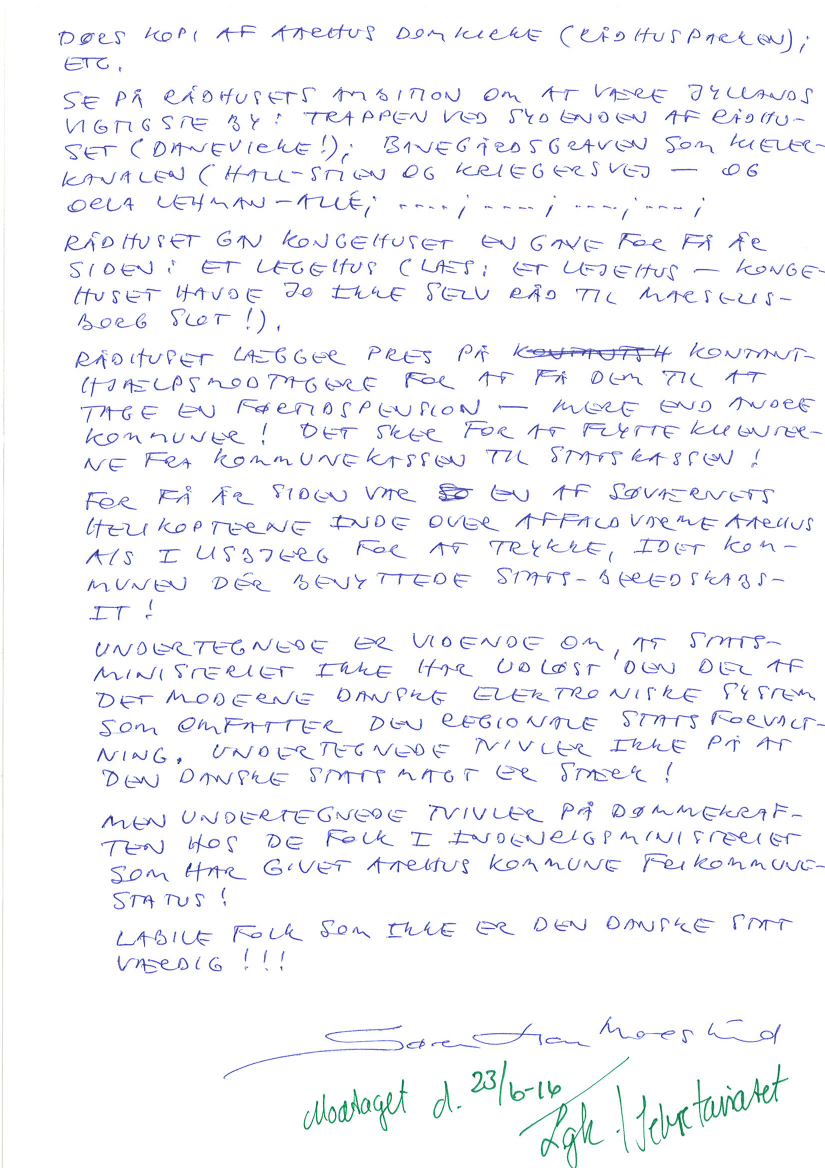 DØRS KOPI AF AARHUS DOMKIRKE (RÅDHUSPARKEN);
ETC.
SE PÅ RÅDHUSETS AMBITION OM AT VÆRE JYLLANDS
VIGTIGSTE BY: TRAPPEN VED SYDENDEN AF RÅDHU-
SET (DANEVIRKE!); BANEGÅRDSGRAVEN SOM KIELER-
KANALEN (HALL-STIEN OG KRIEGERSVEJ — OG
ORLA LEHMAN-ALLÉ; ----; ----; ----; ---;
RÅDHUSET GAV KONGEHUSET EN GAVE FOR FÅ ÅR
SIDEN: ET LEGEHUS (LÆS: ET LEJEHUS — KONGE-
HUSET HAVDE JO IKKE SELV RÅD TIL MARSELIS-
BORG SLOT!).
RÅDHUSET LÆGGER PRES PÅ KONTANT-
HJÆLPSMODTAGERE FOR AT FÅ DEM TIL AT
TAGE EN FØRTIDSPENSION — MERE END ANDRE
KOMMUNER! DET SKER FOR AT FLYTTE KLIENTER-
NE FRA KOMMUNEKASSEN TIL STATSKASSEN!
FOR FÅ ÅR SIDEN VAR EN AF SØVÆRNETS
HELIKOPTERNE INDE OVER AFFALDVARME AARHUS
A/S I LISBJERG FOR AT TRYKKE, IDET KOM-
MUNEN DÉR BENYTTEDE STATS-BEREDSKABS-
IT!
UNDERTEGNEDE ER VIDENDE OM, AT STATS-
MINISTERIET IKKE HAR UDLØST DEN DEL AF
DET MODERNE DANSKE ELEKTRONISKE SYSTEM
SOM OMFATTER DEN REGIONALE STATSFORVALT-
NING. UNDERTEGNEDE TVIVLER IKKE PÅ AT
DEN DANSKE STATSMAGT ER STÆRK!
MEN UNDERTEGNEDE TVIVLER PÅ DØMMEKRAF-
TEN HOS DE FOLK I INDENRIGSMINISTERIET
SOM HAR GIVET AARHUS KOMMUNE FRIKOMMUNE-
STATUS!
LABILE FOLK SOM IKKE ER DEN DANSKE STAT
VÆRDIG!!!
Søren
Modtaget d. 23/6-16
/Sekretariatet